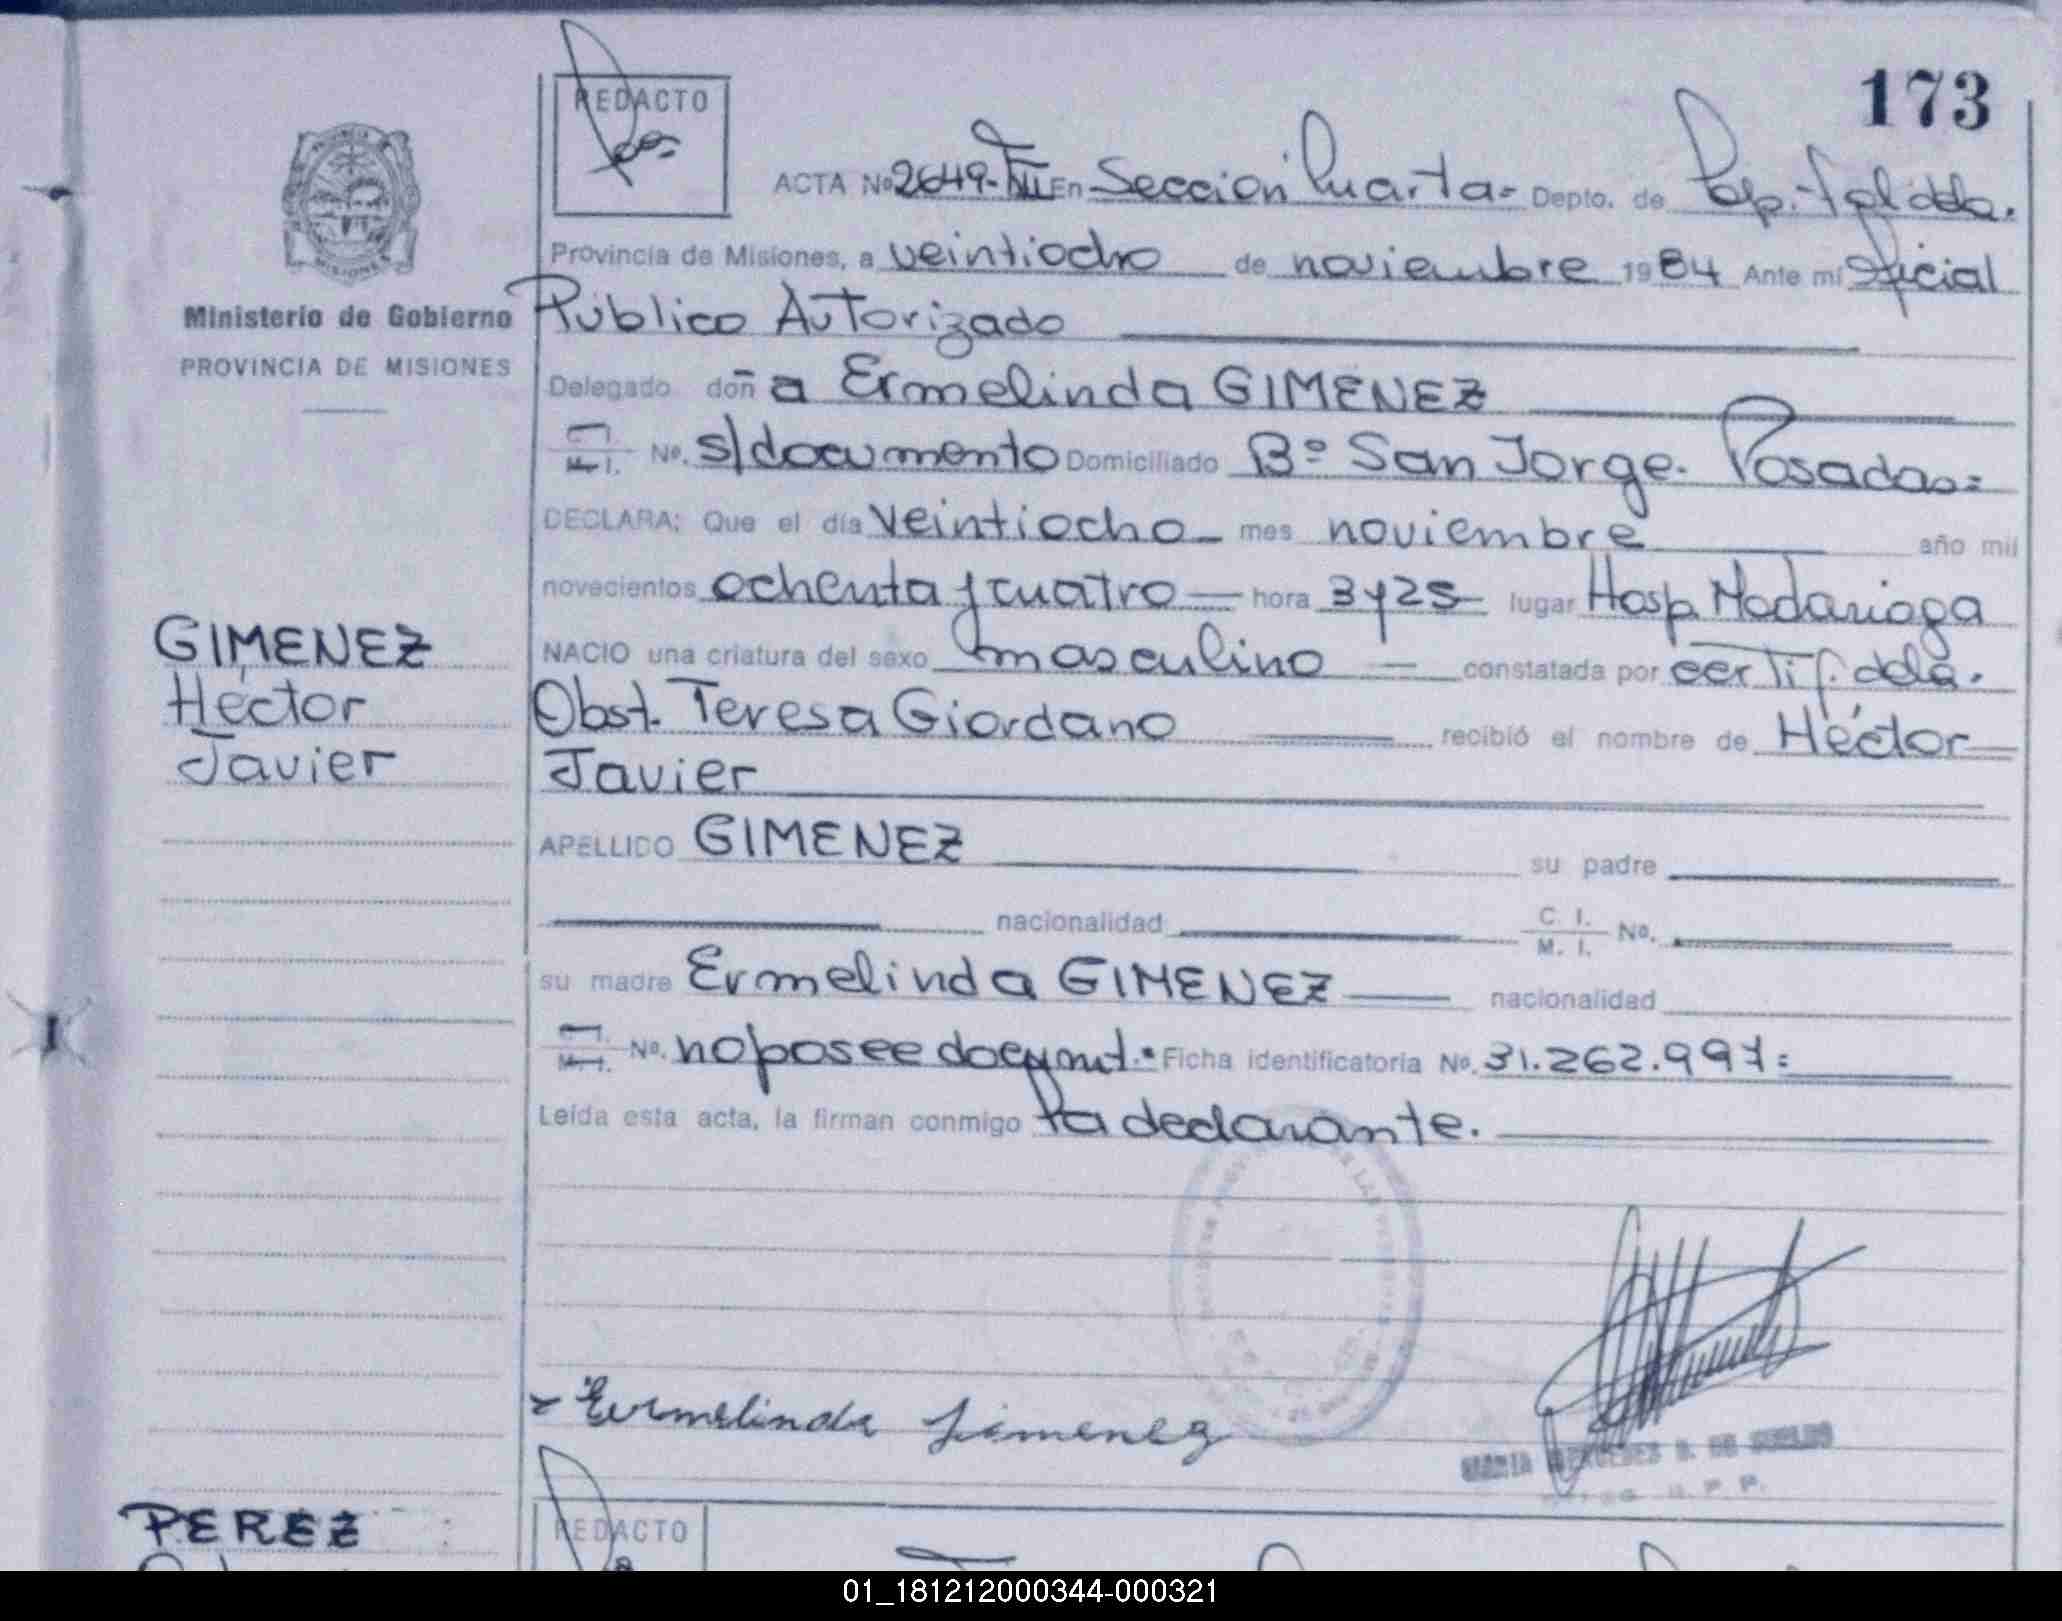 173
REDACTO
ACTA Nº 2649-TºVII En Sección Cuarta= Depto. de Cap.
Provincia de Misiones, a veintiocho de noviembre 1984 Ante mí Oficial
Público Autorizado
Delegado doña Ermelinda GIMENEZ
C.I. M.I. Nº. s/documento Domiciliado Bº San Jorge. Posadas=
DECLARA: Que el día veintiocho mes noviembre año mil
novecientos ochenta y cuatro hora 3 y 25 lugar Hosp. Madariaga
NACIO una criatura del sexo masculino constatada por certif. dela.
Obst. Teresa Giordano recibió el nombre de Héctor
Javier
APELLIDO GIMENEZ su padre
nacionalidad C. I. M. I. Nº.
su madre Ermelinda GIMENEZ nacionalidad
C.I. M.I. Nº. no posee docum. Ficha identificatoria Nº. 31.262.997=
Leída esta acta, la firman conmigo la declarante.
Ermelinda Gimenez
MARIA MERCEDES
PROVINCIA
MISIONES
Ministerio de Gobierno
PROVINCIA DE MISIONES
GIMENEZ
Héctor
Javier
PEREZ
REDACTO
01_181212000344-000321